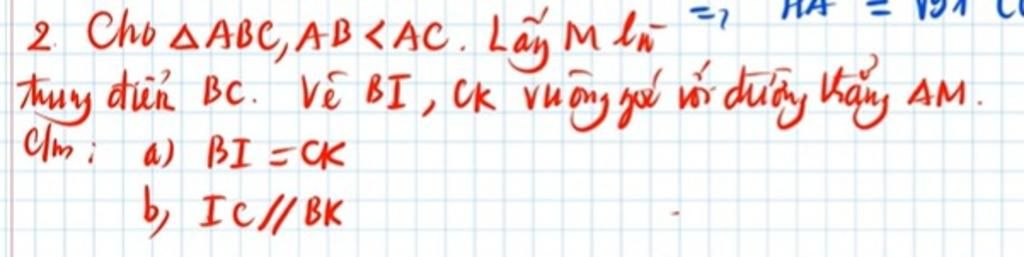 => HA =
2. Cho △ABC, AB < AC. Lấy M là
trung điểm BC. Vẽ BI, CK vuông góc với đường thẳng AM.
C/m: a) BI = CK
b, IC // BK